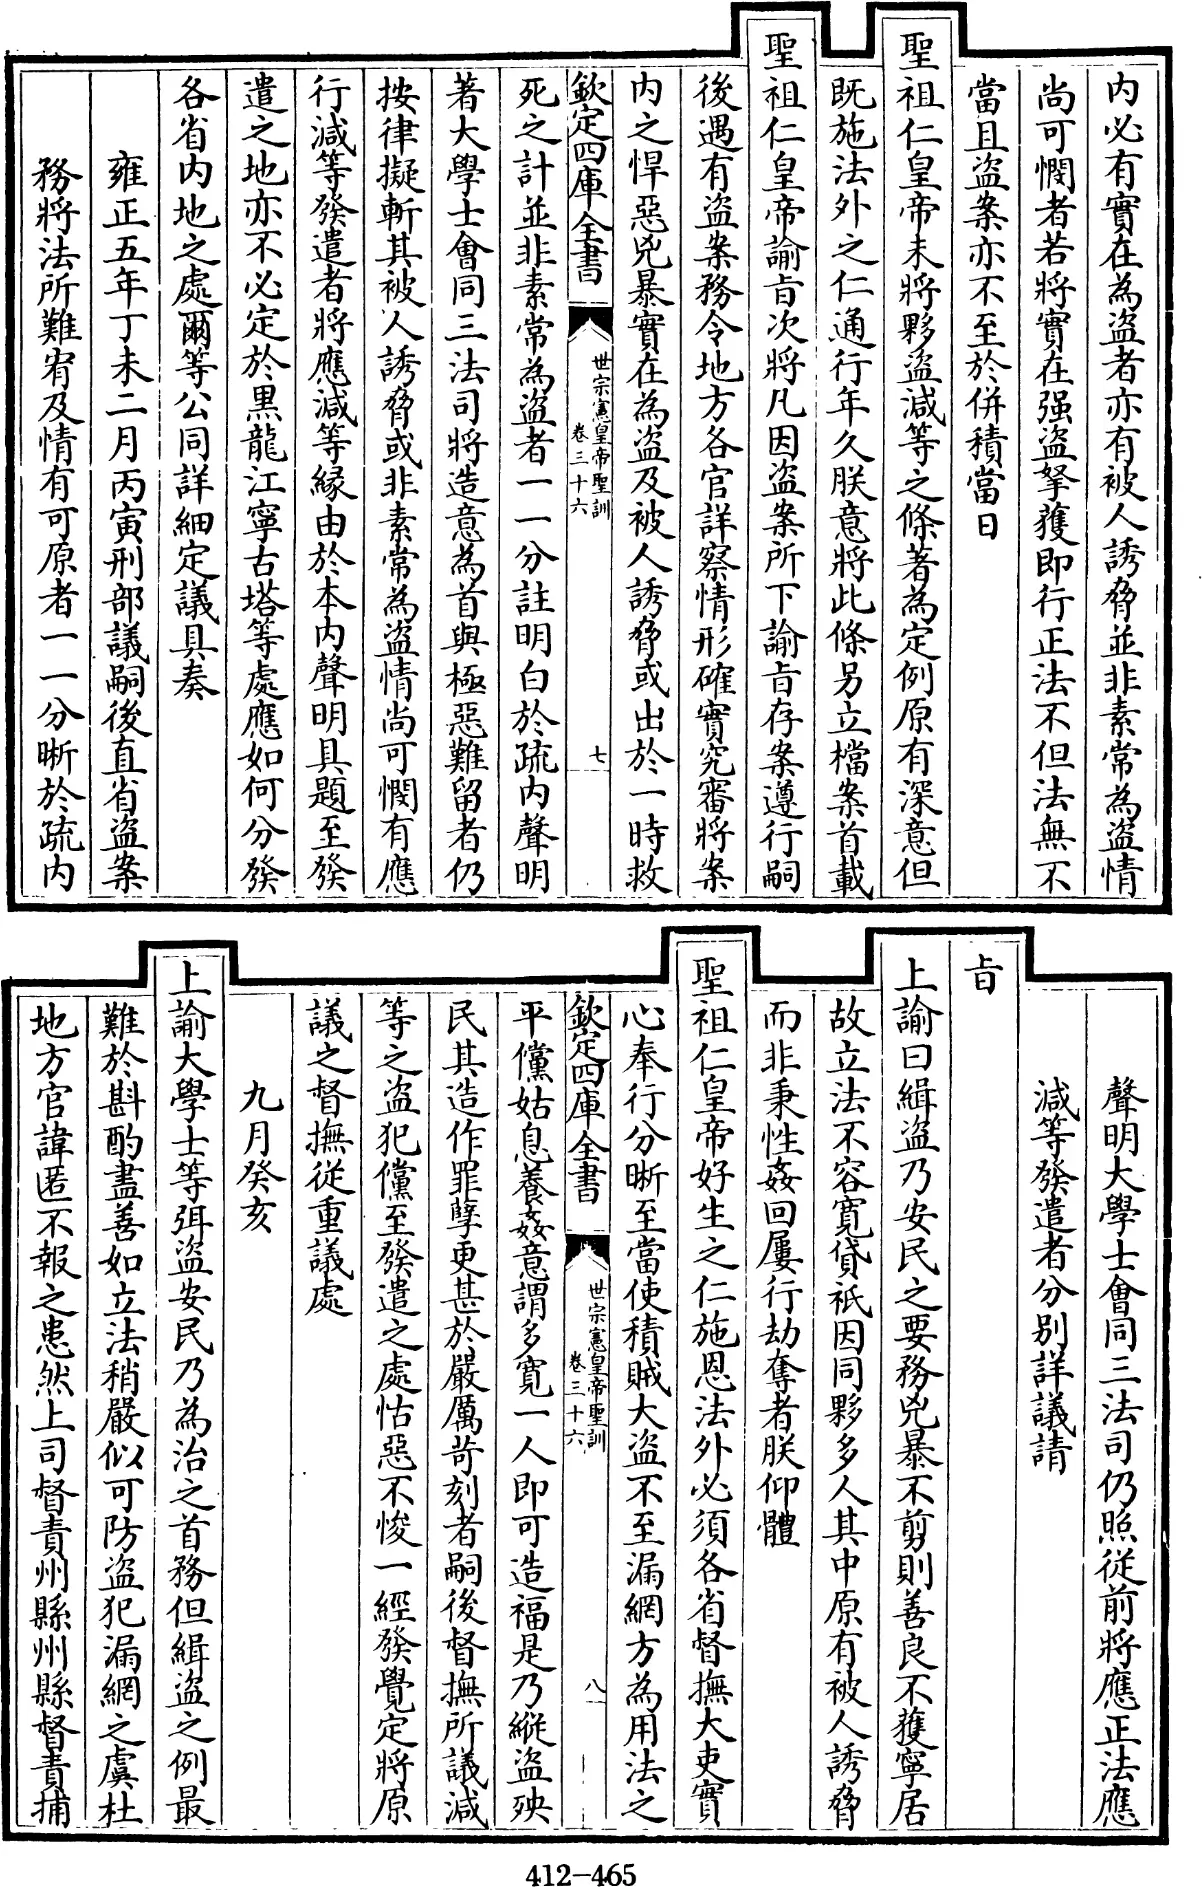 内必有實在為盜者亦有被人誘脅並非素常為盜情
尚可憫者若將實在强盜拏獲即行正法不但法無不
當且盜案亦不至於併積當日
聖祖仁皇帝未將夥盜減等之條著為定例原有深意但
既施法外之仁通行年久朕意將此條另立檔案首載
聖祖仁皇帝諭旨次將凡因盜案所下諭旨存案遵行嗣
後遇有盜案務令地方各官詳察情形確實究審將案
内之悍惡兇暴實在為盜及被人誘脅或出於一時救
欽定四庫全書
世宗憲皇帝聖訓
卷三十六
七
死之計並非素常為盜者一一分註明白於疏内聲明
著大學士會同三法司將造意為首與極惡難留者仍
按律擬斬其被人誘脅或非素常為盜情尚可憫有應
行減等發遣者將應減等緣由於本内聲明具題至發
遣之地亦不必定於黒龍江寧古塔等處應如何分發
各省内地之處爾等公同詳細定議具奏
雍正五年丁未二月丙寅刑部議嗣後直省盜案
務將法所難宥及情有可原者一一分晰於疏内
聲明大學士會同三法司仍照從前將應正法應
減等發遣者分别詳議請
旨
上諭曰緝盜乃安民之要務兇暴不剪則善良不獲寧居
故立法不容寛貸祇因同夥多人其中原有被人誘脅
而非秉性姦回屢行劫奪者朕仰體
聖祖仁皇帝好生之仁施恩法外必須各省督撫大吏實
心奉行分晰至當使積賊大盜不至漏網方為用法之
欽定四庫全書
世宗憲皇帝聖訓
卷三十六
八
平儻姑息養姦意謂多寛一人即可造福是乃縱盜殃
民其造作罪孽更甚於嚴厲苛刻者嗣後督撫所議減
等之盜犯儻至發遣之處怙惡不悛一經發覺定將原
議之督撫從重議處
九月癸亥
上諭大學士等弭盜安民乃為治之首務但緝盜之例最
難於斟酌盡善如立法稍嚴似可防盜犯漏網之虞杜
地方官諱匿不報之患然上司督責州縣州縣督責捕
412-465